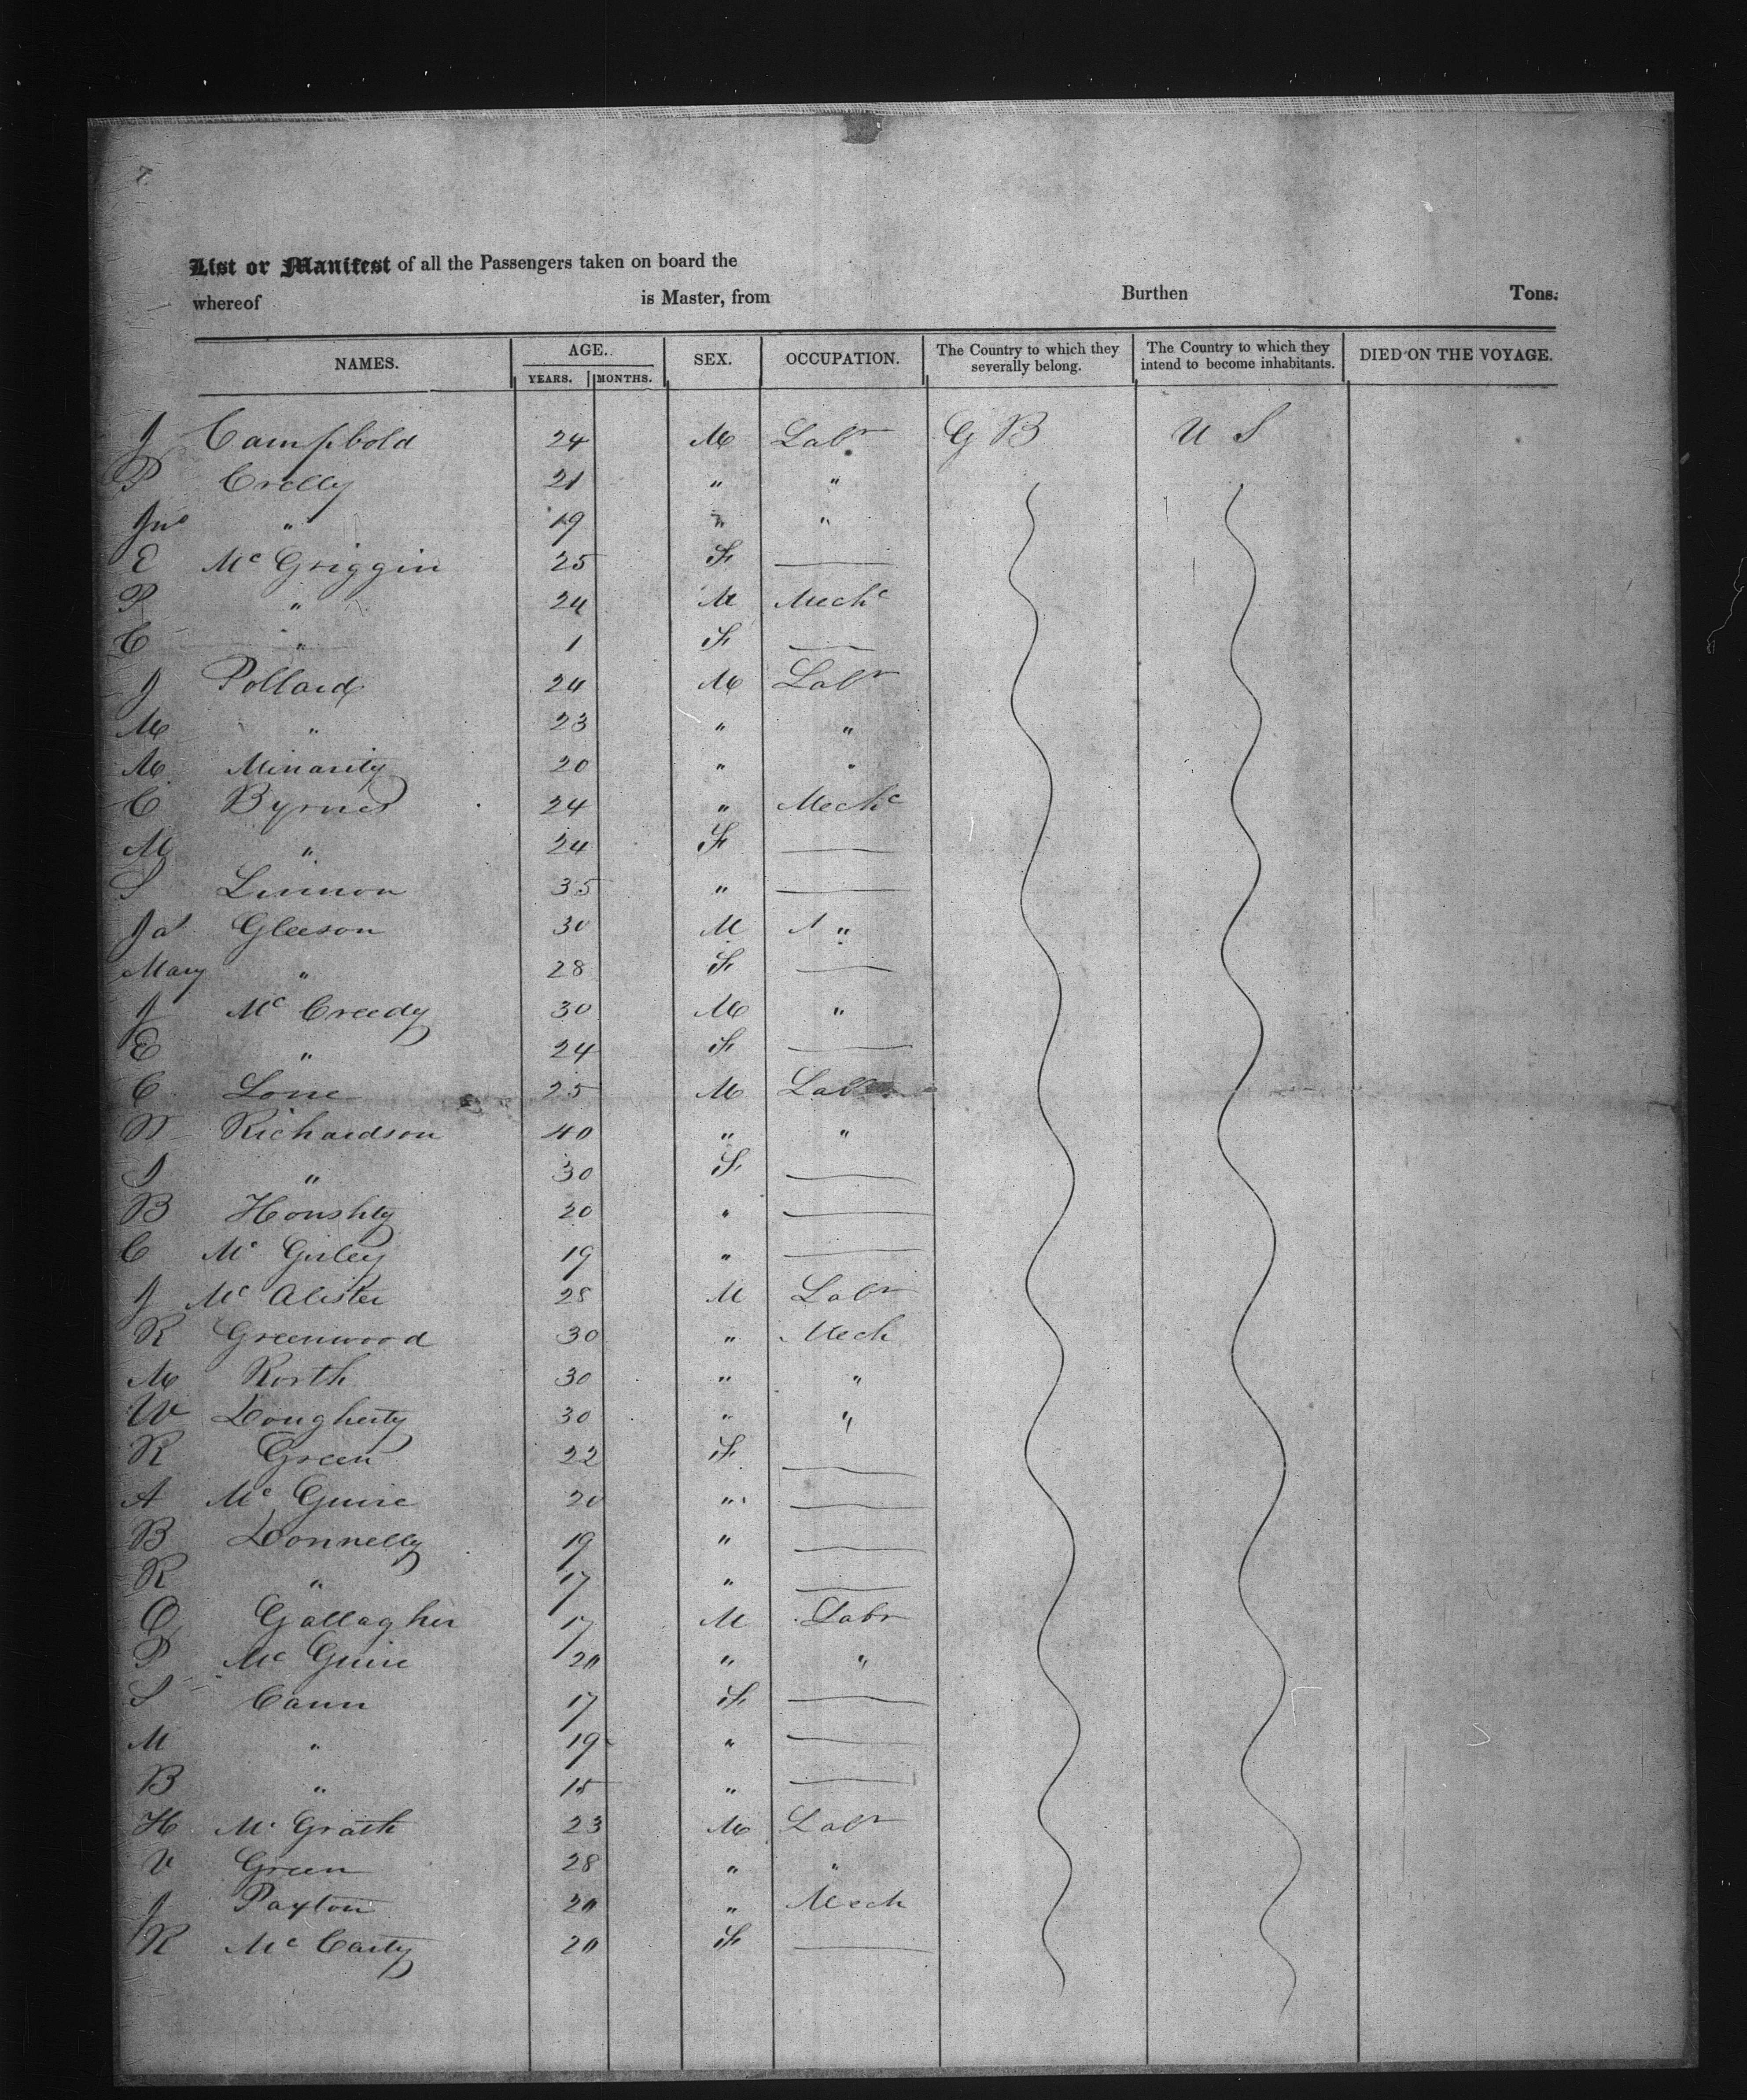 7.
List or Manifest of all the Passengers taken on board the
whereof is Master, from Burthen Tons.
NAMES. AGE. YEARS. MONTHS. SEX. OCCUPATION. The Country to which they severally belong. The Country to which they intend to become inhabitants. DIED ON THE VOYAGE.
J Campbold 24 M Labr G B U S
P Crelly 21 " "
Jno " 19 " "
E Mc Griggin 25 F —
P " 24 M Mechc
C " 1 F —
J Pollard 24 M Labr
M " 23 " "
M Minarity 20 " "
C Byrnes 24 " Mechc
M " 24 F —
S Linnon 35 " —
Jas Gleeson 30 M "
Mary " 28 F —
J Mc Creedy 30 M "
E " 24 F —
C Lone 25 M Labr
W Richardson 40 " "
S " 30 F —
B Honshty 20 " —
C Mc Girley 19 " —
J Mc Alister 28 M Labr
R Greenwood 30 " Mech
M Rorth 30 " "
W Dougherty 30 " "
R Green 22 F —
A Mc Guire 20 " —
B Donnelly 19 " —
R " 17 " —
O Gallagher 17 M Labr
P Mc Guire 20 " "
S Cann 17 F —
M " 19 " —
B " 15 " —
H Mc Grath 23 M Labr
V Green 28 " "
J Paxton 20 " Mech
R Mc Carty 20 F —